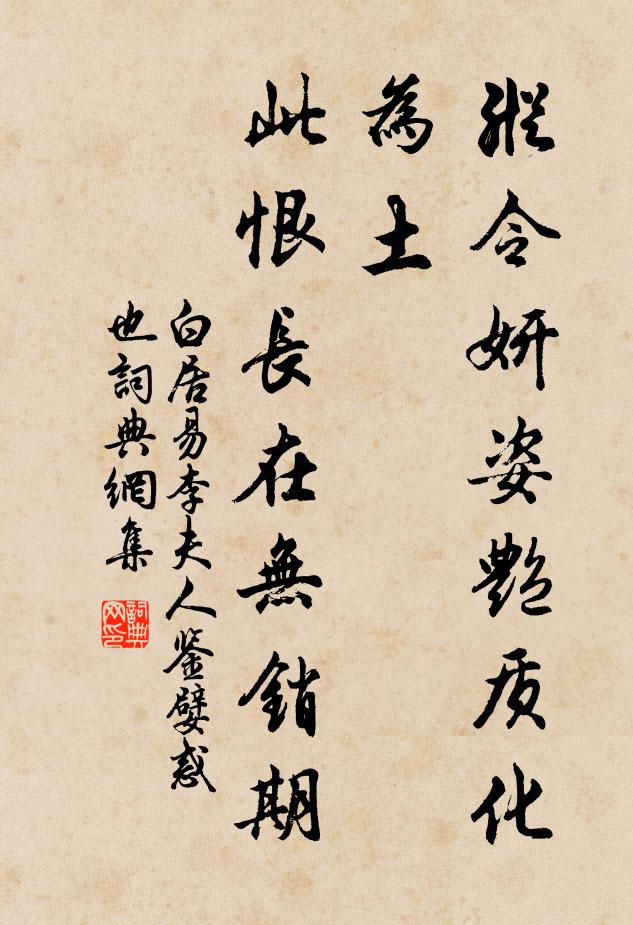 縱令妍姿艷质化
為土
此恨長在無銷期
白居易李夫人鉴嬖惑
也詞典網集
詞典网印